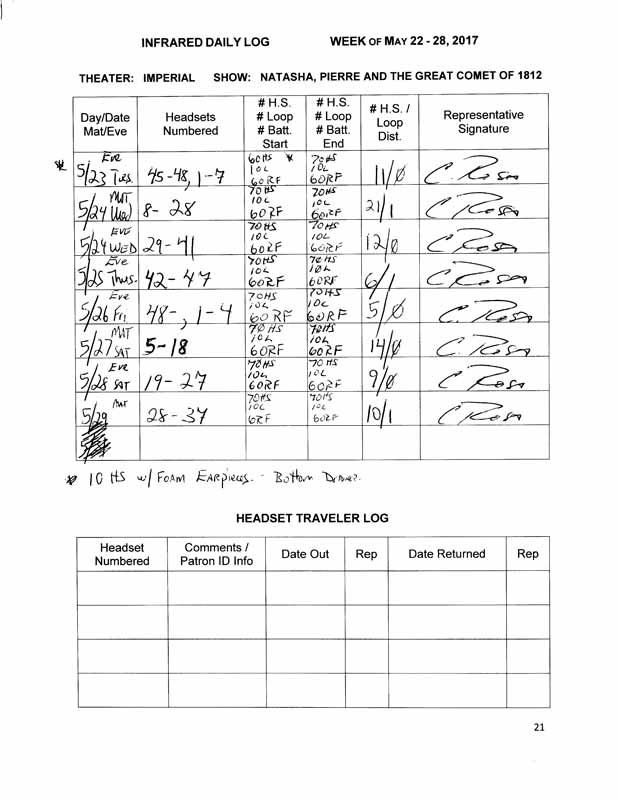 INFRARED DAILY LOG WEEK OF MAY 22 - 28, 2017
THEATER: IMPERIAL SHOW: NATASHA, PIERRE AND THE GREAT COMET OF 1812
Day/Date Mat/Eve Headsets Numbered # H.S. # Loop # Batt. Start # H.S. # Loop # Batt. End # H.S. / Loop Dist. Representative Signature
* 5/23 Tues Eve 45-48, 1-7 60HS * 10L 60RF 70HS 10L 60RF 11/0 C. Rosa
5/24 Wed MAT 8-28 70HS 10L 60RF 70HS 10L 60RF 21/1 C Rosa
5/24 WED EVE 29-41 70HS 10L 60RF 70HS 10L 60RF 12/0 C Rosa
5/25 Thus. Eve 42-47 70HS 10L 60RF 70HS 10L 60RF 6/1 C Rosa
5/26 Fri Eve 48-, 1-4 70HS 10L 60RF 70HS 10L 60RF 5/0 C. Rosa
5/27 SAT MAT 5-18 70HS 10L 60RF 70HS 10L 60RF 14/0 C. Rosa
5/28 SAT Eve 19-27 70HS 10L 60RF 70HS 10L 60RF 9/0 C Rosa
5/29 MAT 28-37 70HS 10L 6RF 70HS 10L 60RF 10/1 C Rosa
* 10 HS w/ FOAM EARPIECES. - Bottom
HEADSET TRAVELER LOG
Headset Numbered Comments / Patron ID Info Date Out Rep Date Returned Rep
21